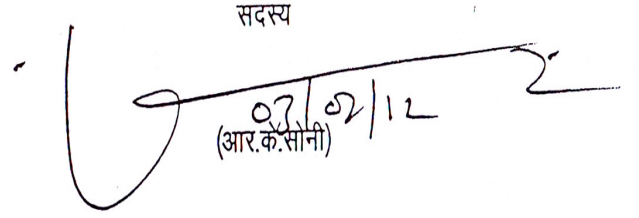 सदस्य
03/02/12
(आर.के.सोनी)